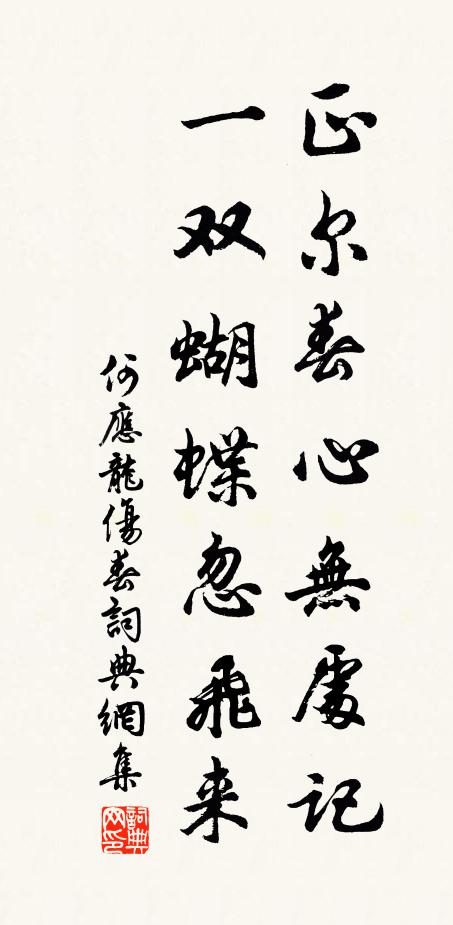 正尔春心無處記
一双蝴蝶忽飛来
何應龍傷春詞典網集
詞典网印